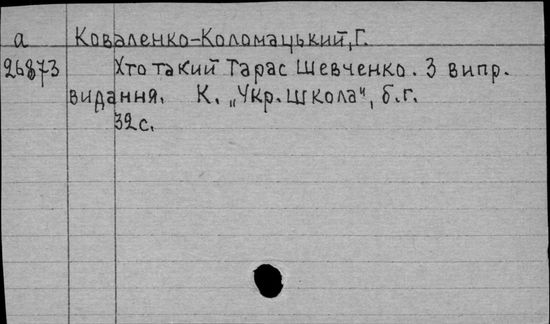 а Коваленко-Коломацький, Г.
26873 Хто такий Тарас Шевченко. 3 випр.
видання. К. „Укр. школа", б.г.
32 с.